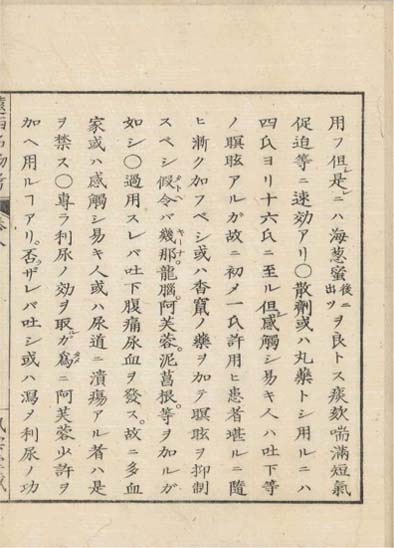 用フ但是レニハ海葱蜜後ニ出ツヲ良トス痰欬喘滿短氣
促迫等ニ速効アリ〇散劑或ハ丸藥トシ用ルニハ
四氏ヨリ十六氏ニ至ル但感觸シ易キ人ハ吐下等
ノ瞑眩アルガ故ニ初メ一氏許用ヒ患者堪ルニ隨
ヒ漸ク加フベシ或ハ香竄ノ藥ヲ加テ瞑眩ヲ抑制
スベシ假令バ幾那龍腦。阿芙蓉。泥菖根。等ヲ加ルガ
如シ〇過用スレバ吐下腹痛尿血ヲ發ス。故ニ多血
家或ハ感觸シ易キ人或ハ尿道ニ潰瘍アル者ハ是
ヲ禁ス〇專ラ利尿ノ効ヲ取ルガ爲ニ阿芙蓉少許ヲ
加ヘ用ルヿアリ。否ザレバ吐シ或ハ瀉メ利尿ノ功